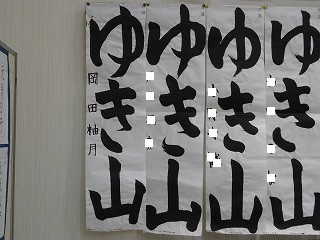 ゆき山
岡田柚月
ゆき山
ゆき山
ゆき山